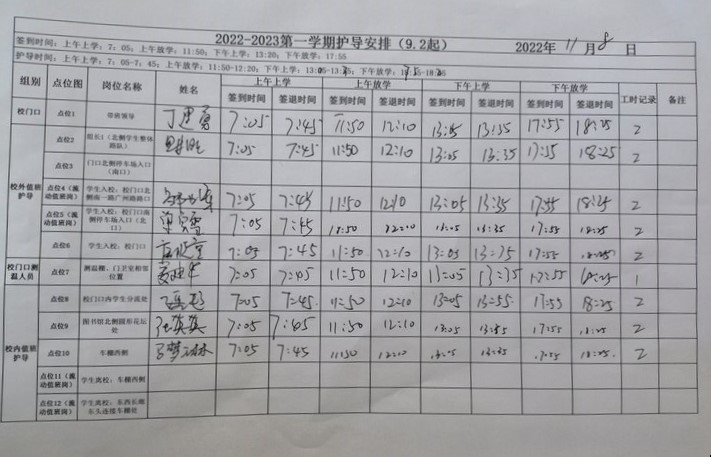 2022-2023第一学期护导安排（9.2起） 2022年 11月 8日
签到时间：上午上学：7：05；上午放学：11:50；下午上学：13:20；下午放学：17:55
护导时间：上午上学：7：05-7：45；上午放学：11:50-12:20；下午上学：下午放学：
组别 点位图 岗位名称 姓名 上午上学 上午放学 下午上学 下午放学 工时记录 备注
签到时间 签退时间 签到时间 签退时间 签到时间 签退时间 签到时间 签退时间
校门口 点位1 带班领导 丁建勇 7:05 7:45 11:50 12:10 13:05 13:35 17:55 18:25 2
校外值班护导
点位2 组长1（北侧学生整体路队） 7:05 7:45 11:50 12:10 13:05 13:35 17:55 18:25 2
点位3 门口北侧停车场入口（南口）
点位4（流动值班岗） 学生入校：校门口北侧南一路广州路路口 7:05 7:45 11:50 12:10 13:05 13:35 17:55 18:25 2
点位5（流动值班岗） 学生入校：校门口南侧停车场入口（北口） 7:05 7:45 11:50 12:10 13:05 13:35 17:55 18:25 2
点位6 学生入校：校门口 7:05 7:45 11:50 12:10 13:05 13:35 17:55 18:25 2
校门口测温人员 点位7 测温棚、门卫室相邻位置 7:05 7:45 11:50 12:10 13:05 13:35 17:55 18:25 1
校内值班护导
点位8 校门口内学生分流处 7:05 7:45 11:50 12:10 13:05 13:55 17:55 18:25 2
点位9 图书馆北侧圆形花坛处 7:05 7:45 11:50 12:10 13:05 13:35 17:55 18:25 2
点位10 车棚西侧 7:05 7:45 11:50 12:10 13:05 13:35 17:55 18:25 2
点位11（流动值班岗） 学生离校：车棚西侧
点位12（流动值班岗） 学生离校：东西长廊东头连接车棚处